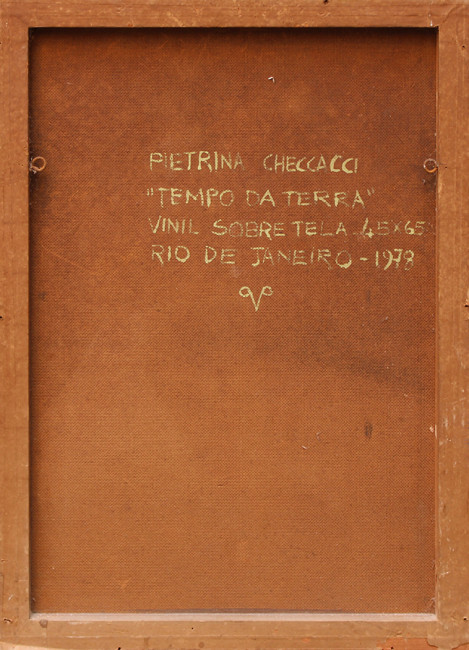 PIETRINA CHECCACCI
"TEMPO DA TERRA"
VINIL SOBRE TELA 45X65
RIO DE JANEIRO - 1978